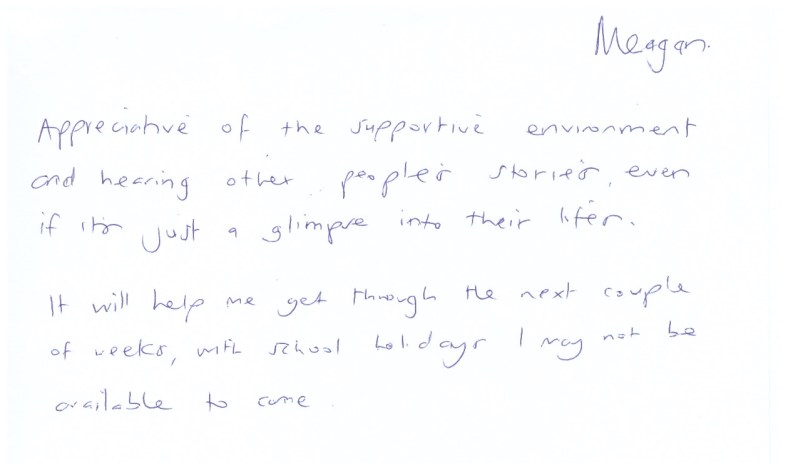 Meagan.
Appreciative of the supportive environment
and hearing other people's stories, even
if it's just a glimpse into their lifes.
It will help me get through the next couple
of weeks, with school holidays I may not be
available to come.